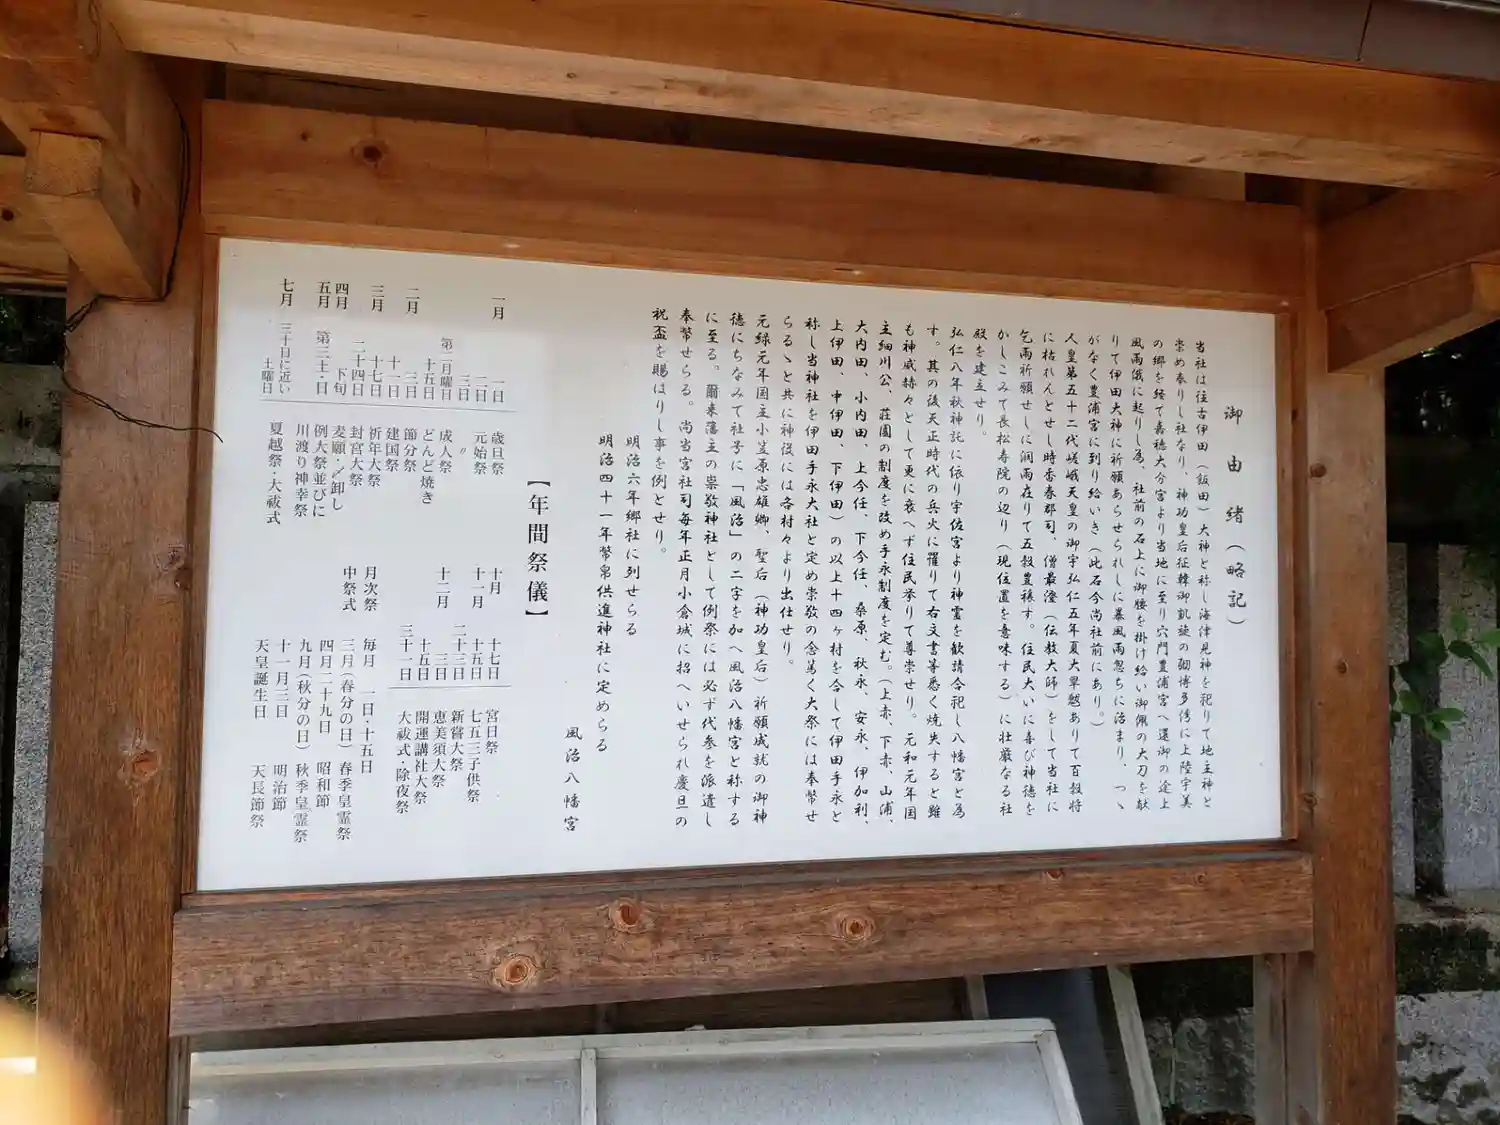 御由緒(略記)
当社は往古伊田(飯田)大神と称し海津見神を祀りて地主神と
崇め奉りし社なり、神功皇后征韓御凱旋の砌博多湾に上陸宇美
の郷を経て嘉穂大分宮より当地に至り穴門豊浦宮へ還御の途上
風雨俄に起りし為、社前の石上に御腰を掛け給い御佩の大刀を献
りて伊田大神に祈願あらせられしに暴風雨忽ちに治まり、つゝ
がなく豊浦宮に到り給いき(此石今尚社前にあり。)
人皇第五十二代嵯峨天皇の御宇弘仁五年夏大旱魃ありて百穀将
に枯れんとせし時香春郡司、僧最澄(伝教大師)をして当社に
乞雨祈願せしに潤雨在りて五穀豊穣す。住民大いに喜び神徳を
かしこみて長松寿院の辺り(現位置を意味する)に壮厳なる社
殿を建立せり。
弘仁八年秋神託に依り宇佐宮より神霊を歓請合祀し八幡宮と為
す。其の後天正時代の兵火に罹りて右文書等悉く焼失すると雖
も神威赫々として更に衰へず住民挙りて尊崇せり。元和元年国
主細川公、荘園の制度を改め手永制度を定む。(上赤、下赤、山浦、
大内田、小内田、上今任、下今任、桑原、秋永、安永、伊加利、
上伊田、中伊田、下伊田)の以上十四ヶ村を合して伊田手永と
称し当神社を伊田手永大社と定め崇敬の念篤く大祭には奉幣せ
らるゝと共に神役には各村々より出仕せり。
元緑元年国主小笠原忠雄卿、聖后(神功皇后)祈願成就の御神
徳にちなみて社号に「風治」の二字を加へ風治八幡宮と称する
に至る。爾来藩主の崇敬神社として例祭には必ず代参を派遣し
奉幣せらる。尚当宮社司毎年正月小倉城に招へいせられ慶旦の
祝盃を賜はりし事を例とせり。
明治六年郷社に列せらる
明治四十一年幣帛供進神社に定めらる
風治八幡宮
【年間祭儀】
一月 一日 歳旦祭
二日 元始祭
三日 〃
第二月曜日 成人祭
十五日 どんど焼き
二月 三日 節分祭
十一日 建国祭
三月 十七日 祈年大祭
二十四日 封宮大祭
四月 下旬 麦願・〆卸し
五月 第三土・日 例大祭並びに
川渡り神幸祭
七月 三十日に近い
土曜日 夏越祭・大祓式
十月 十七日 宮日祭
十一月 十五日 七五三子供祭
二十三日 新嘗大祭
十二月 三日 恵美須大祭
十五日 開運講社大祭
三十一日 大祓式・除夜祭
月次祭 毎月 一日・十五日
中祭式 三月(春分の日) 春季皇霊祭
四月二十九日 昭和節
九月(秋分の日) 秋季皇霊祭
十一月三日 明治節
天皇誕生日 天長節祭